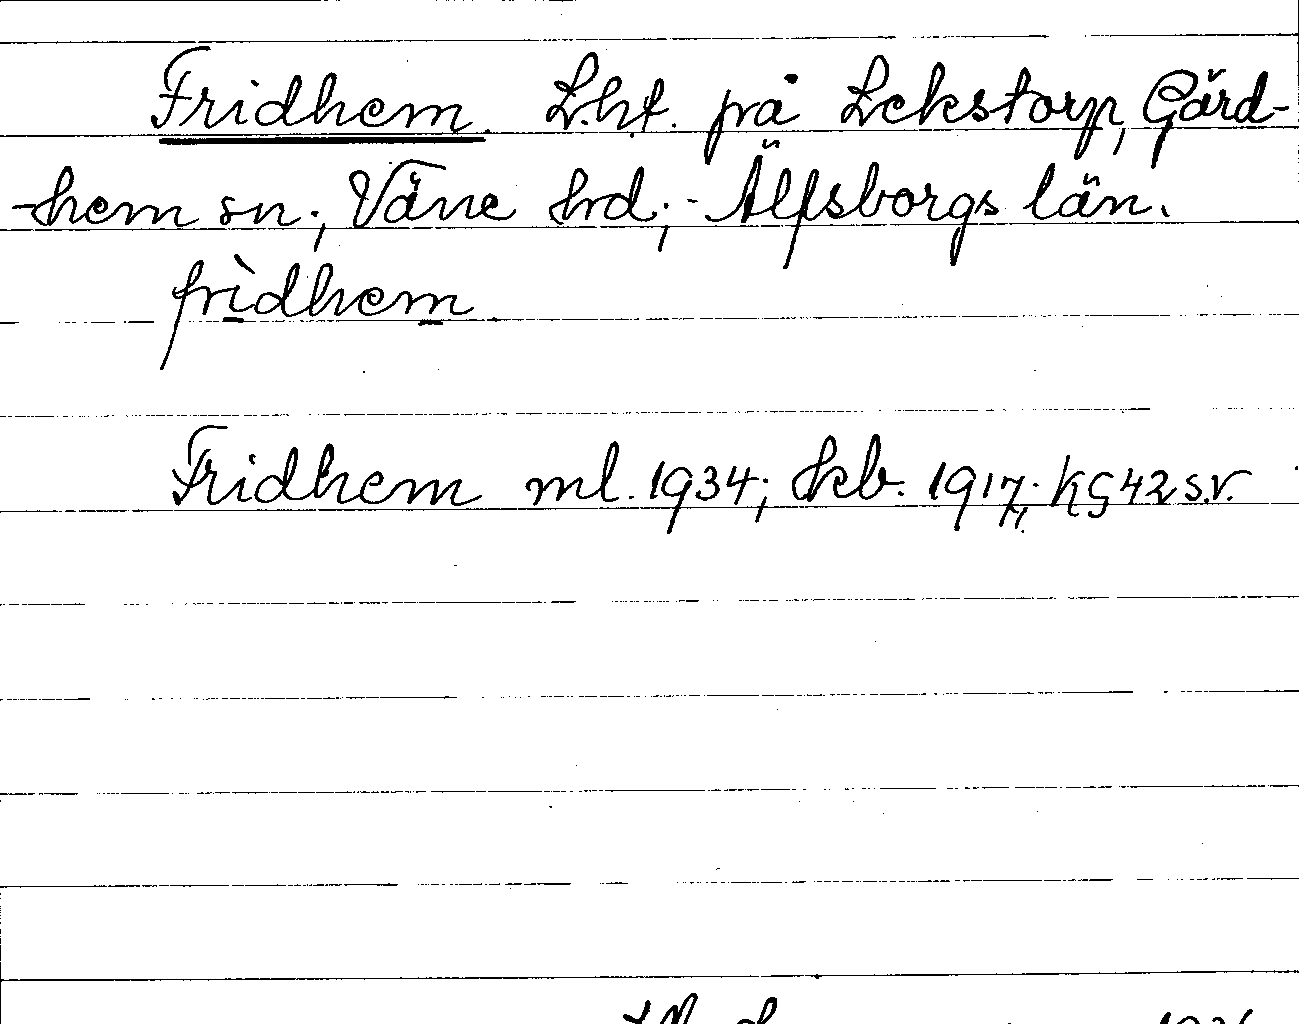 Fridhem. L.ht. på Lekstorp, Gärd-
-hem sn., Väne hd., Älfsborgs län.
frìdhem
Fridhem ml. 1934; kb. 1917; KG 42 s.v.